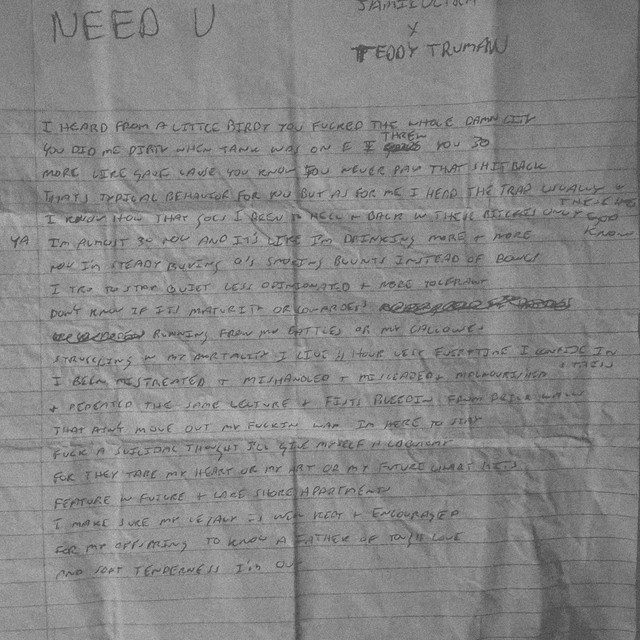 NEED U
X
TEDDY TRUMAN
I HEARD FROM A LITTLE BIRDY YOU FUCKED THE WHOLE DAMN CITY
THREW
YOU DID ME DIRTY WHEN TANK WAS ON E I YOU 30
MORE LIKE GAVE CAUSE YOU KNOW YOU NEVER PAY THAT SHIT BACK
THATS TYPICAL BEHAVIOR FOR YOU BUT AS FOR ME I HEAD THE TRAP USUALLY +
I KNOW HOW THAT GOES I BEEN TO HELL + BACK ONLY GOD
KNOW
YA IM ALMOST 30 NOW AND ITS LIKE I'M DRINKING MORE + MORE
NOW IM STEADY BUYING O'S SMOKING BLUNTS INSTEAD OF BOWLS
I TRY TO STAY QUIET LESS OPINIONATED + MORE TOLERANT
DON'T KNOW IF ITS MATURITY OR COWARDESS
RUNNING FROM MY BATTLES OR MY GALLOWS
STRUGGLING W MY MORTALITY I LIVE 4 HOUR EVERYTIME I CONFIDE IN
I BEEN MISTREATED + MISHANDLED + MISLEADED + MALNOURISHED
+ REPEATED THE SAME LECTURE + FISTS BLEEDIN FROM BRICK WALLS
THAT AINT MOVE OUT MY FUCKIN WAY IM HERE TO STAY
FUCK A SUICIDAL THOUGHT I'LL GIVE MYSELF A
FOR THEY TAKE MY HEART OR MY ART OR MY FUTURE
FEATURE W FUTURE + LAKE SHORE APARTMENT
I MAKE SURE MY LEGACY IS WELL KEPT + ENCOURAGED
FOR MY OFFSPRING TO KNOW A FATHER OF TOUGH LOVE
AND SOFT TENDERNESS I'M